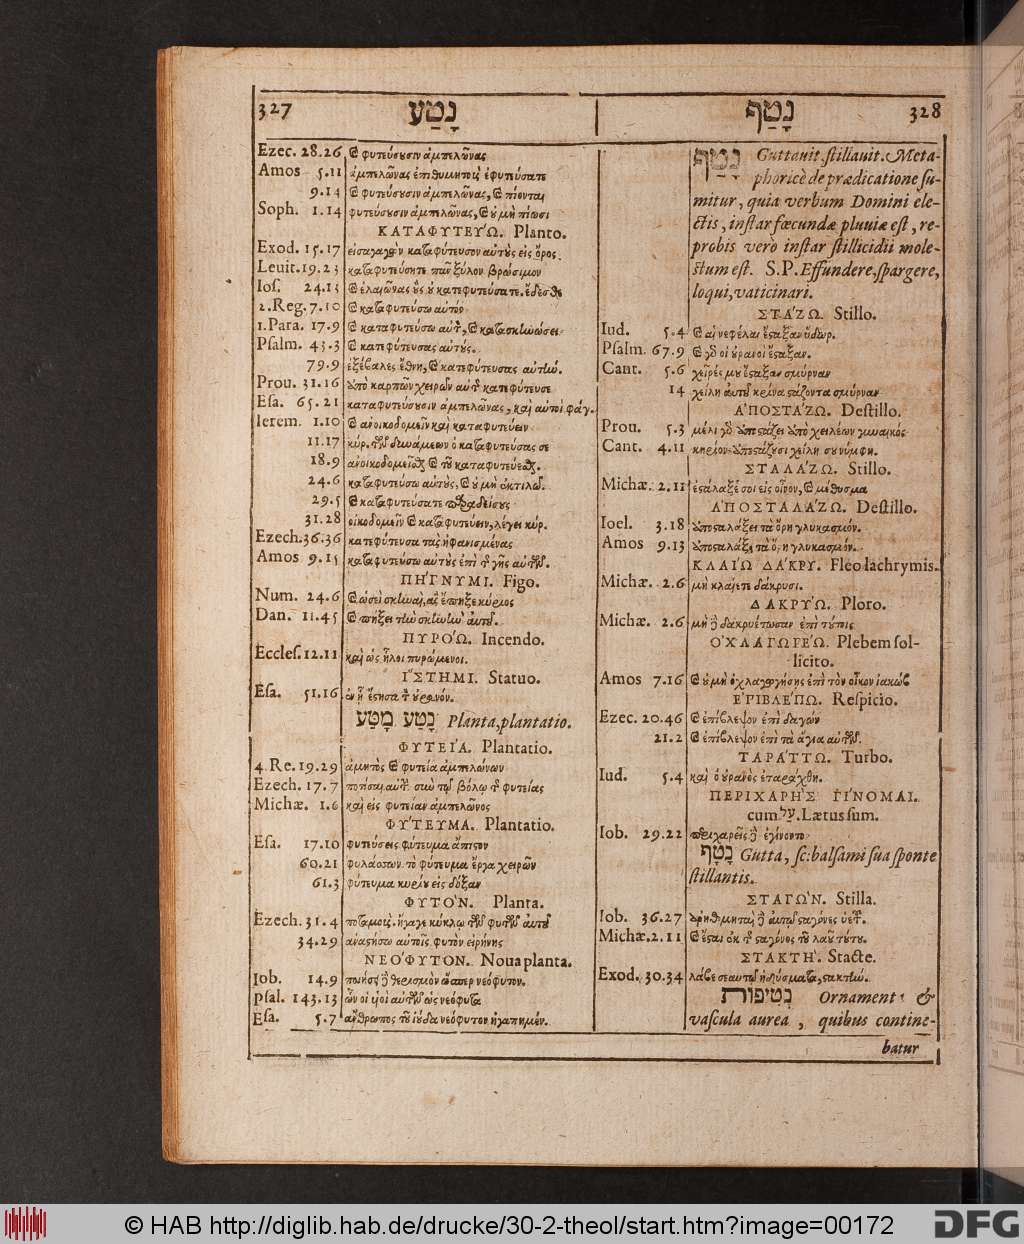 327 נָטַע
Ezec. 28.26 φυτεύσουσιν ἀμπελῶνας
Amos 5.11 ἀμπελῶνας ἐπιθυμητοὺς ἐφυτεύσατε
9.14 φυτεύσουσιν ἀμπελῶνας, πίονται
Soph. 1.14 φυτεύσουσιν ἀμπελῶνας, οὐ μὴ πίωσι
ΚΑΤΑΦΥΤΕΥΏ. Planto.
Exod. 15.17 εἰσαγαγὼν καταφύτευσον αὐτοὺς εἰς ὄρος.
Leuit. 19.23 καταφυτεύσητε πᾶν ξύλον βρώσιμον
Ios. 24.13 ἐλαιῶνας οὓς οὐ κατεφυτεύσατε, ἔδεσθε
2. Reg. 7.10 καταφυτεύσω αὐτὸν
1. Para. 17.9 καταφυτεύσω αὐτ
Psalm. 43.3 κατεφύτευσας αὐτούς.
79.9 ἐξέβαλες ἔθνη, κατεφύτευσας αὐτὴν.
Prou. 31.16 ἀπὸ καρπῶν χειρῶν αὐτ κατεφύτευσε
Esa. 65.21 καταφυτεύσουσιν ἀμπελῶνας, καὶ αὐτοὶ φάγ.
Ierem. 1.10 ἀνοικοδομεῖν καὶ καταφυτεύειν
11.17 κύρ. τῶν δυνάμεων ὁ καταφυτεύσας σε
18.9 ἀνοικοδομεῖσθαι τοῦ καταφυτεύεσθαι.
24.6 καταφυτεύσω αὐτοὺς, οὐ μὴ ἐκτιλῶ.
29.5 καταφυτεύσατε παραδείσους
31.28 οἰκοδομεῖν καταφυτεύειν, λέγει κύρ.
Ezech. 36.36 κατεφύτευσα τὰς ἠφανισμένας
Amos 9.15 καταφυτεύσω αὐτοὺς ἐπὶ τῆς γῆς αὐτῶν.
ΠΗΓΝΥΜΙ. Figo.
Num. 24.6 ὡσεὶ σκηναὶ, ἃς ἔπηξε κύριος
Dan. 11.45 πήξει τὴν σκηνὴν αὐτοῦ.
ΠΥΡΟΏ. Incendo.
Eccles. 12.11 καὶ ὡς ἧλοι πυρώμενοι.
ἽΣΤΗΜΙ. Statuo.
Esa. 51.16 ἐν ᾗ ἔστησα τὸν οὐρανόν.
נֶטַע מַטָּע Planta, plantatio.
ΦΥΤΕΙΆ. Plantatio.
4. Re. 19.29 ἀμητὸς φυτεία ἀμπελώνων
Ezech. 17.7 ποτίσαι αὐτ. σὺν τῷ βόλῳ τῆς φυτείας
Michæ. 1.6 καὶ εἰς φυτείαν ἀμπελῶνος
ΦΥΤΕΥΜΑ. Plantatio.
Esa. 17.10 φυτεύσεις φύτευμα ἄπιστον
60.21 φυλάσσων τὸ φύτευμα ἔργα χειρῶν
61.3 φύτευμα κυρίου εἰς δόξαν
ΦΥΤΟΝ. Planta.
Ezech. 31.4 ποταμοὺς ἤγαγε κύκλῳ τῶν φυτῶν αὐτοῦ
34.29 ἀναστήσω αὐτοῖς φυτὸν εἰρήνης
ΝΕΟΦΥΤΟΝ. Noua planta.
Iob. 14.9 ποιήσει θερισμὸν ὥσπερ νεόφυτον.
Psal. 143.13 ὧν οἱ υἱοὶ αὐτῶν ὡς νεόφυτα
Esa. 5.7 ἄνθρωπος τοῦ ἰούδα νεόφυτον ἠγαπημέν.
נָטַף 328
נָטַף Guttauit, stillauit. Meta-
phoricè de prædicatione su-
mitur, quia verbum Domini ele-
ctis, instar fœcundæ pluuiæ est, re-
probis verò instar stillicidii mole-
stum est. S.P. Effundere, spargere,
loqui, vaticinari.
ΣΤΑΖΩ. Stillo.
Iud. 5.4 αἱ νεφέλαι ἔσταξαν ὕδωρ.
Psalm. 67.9 οἱ οὐρανοὶ ἔσταξαν.
Cant. 5.6 χεῖρές μου ἔσταξαν σμύρναν
14 χείλη αὐτοῦ κρίνα στάζοντα σμύρναν
ἈΠΟΣΤΑΖΩ. Destillo.
Prou. 5.3 μέλι ἀποστάζει ἀπὸ χειλέων γυναικός
Cant. 4.11 κηρίον ἀποστάζουσι χείλη σου νύμφη.
ΣΤΑΛΑΖΩ. Stillo.
Michæ. 2.11 ἐστάλαξέ σοι εἰς οἶνον, μέθυσμα
ἈΠΟΣΤΑΛΑΖΩ. Destillo.
Ioel. 3.18 ἀποσταλάξει τὰ ὄρη γλυκασμόν.
Amos 9.13 ἀποσταλάξει τὰ ὄρη γλυκασμόν.
ΚΛΑΙΩ ΔΑΚΡΥ. Fleo lachrymis.
Michæ. 2.6 μὴ κλαίετε δάκρυσι.
ΔΑΚΡΥΏ. Ploro.
Michæ. 2.6 μὴ δακρυέτωσαν ἐπὶ τούτοις
ὈΧΛΑΓΩΓΕΩ. Plebem sol-
licito.
Amos 7.16 οὐ μὴ ὀχλαγωγήσης ἐπὶ τὸν οἶκον ἰακώβ
ἘΠΙΒΛΕΠΩ. Respicio.
Ezec. 20.46 ἐπίβλεψον ἐπὶ δαγών
21.2 ἐπίβλεψον ἐπὶ τὰ ἅγια αὐτῶν.
ΤΑΡΑΤΤΩ. Turbo.
Iud. 5.4 καὶ ὁ οὐρανὸς ἐταράχθη.
ΠΕΡΙΧΑΡΗΣ ΓΙΝΟΜΑΙ.
cum עַל. Lætus sum.
Iob. 29.22 περιχαρεῖς ἐγίνοντο
נָטָף Gutta, sc: balsami sua sponte
stillantis.
ΣΤΑΓΩΝ. Stilla.
Iob. 36.27 ἀριθμηταὶ αὐτῷ σταγόνες ὑετ.
Michæ. 2.11 ἔσται ἐκ τῆς σταγόνος τοῦ λαοῦ τούτου.
ΣΤΑΚΤΗ. Stacte.
Exod. 30.34 λάβε σεαυτῷ ἡδύσματα, στακτὴν.
נְטִיפוֹת Ornament &
vascula aurea, quibus contine-
batur
© HAB http://diglib.hab.de/drucke/30-2-theol/start.htm?image=00172
DFG